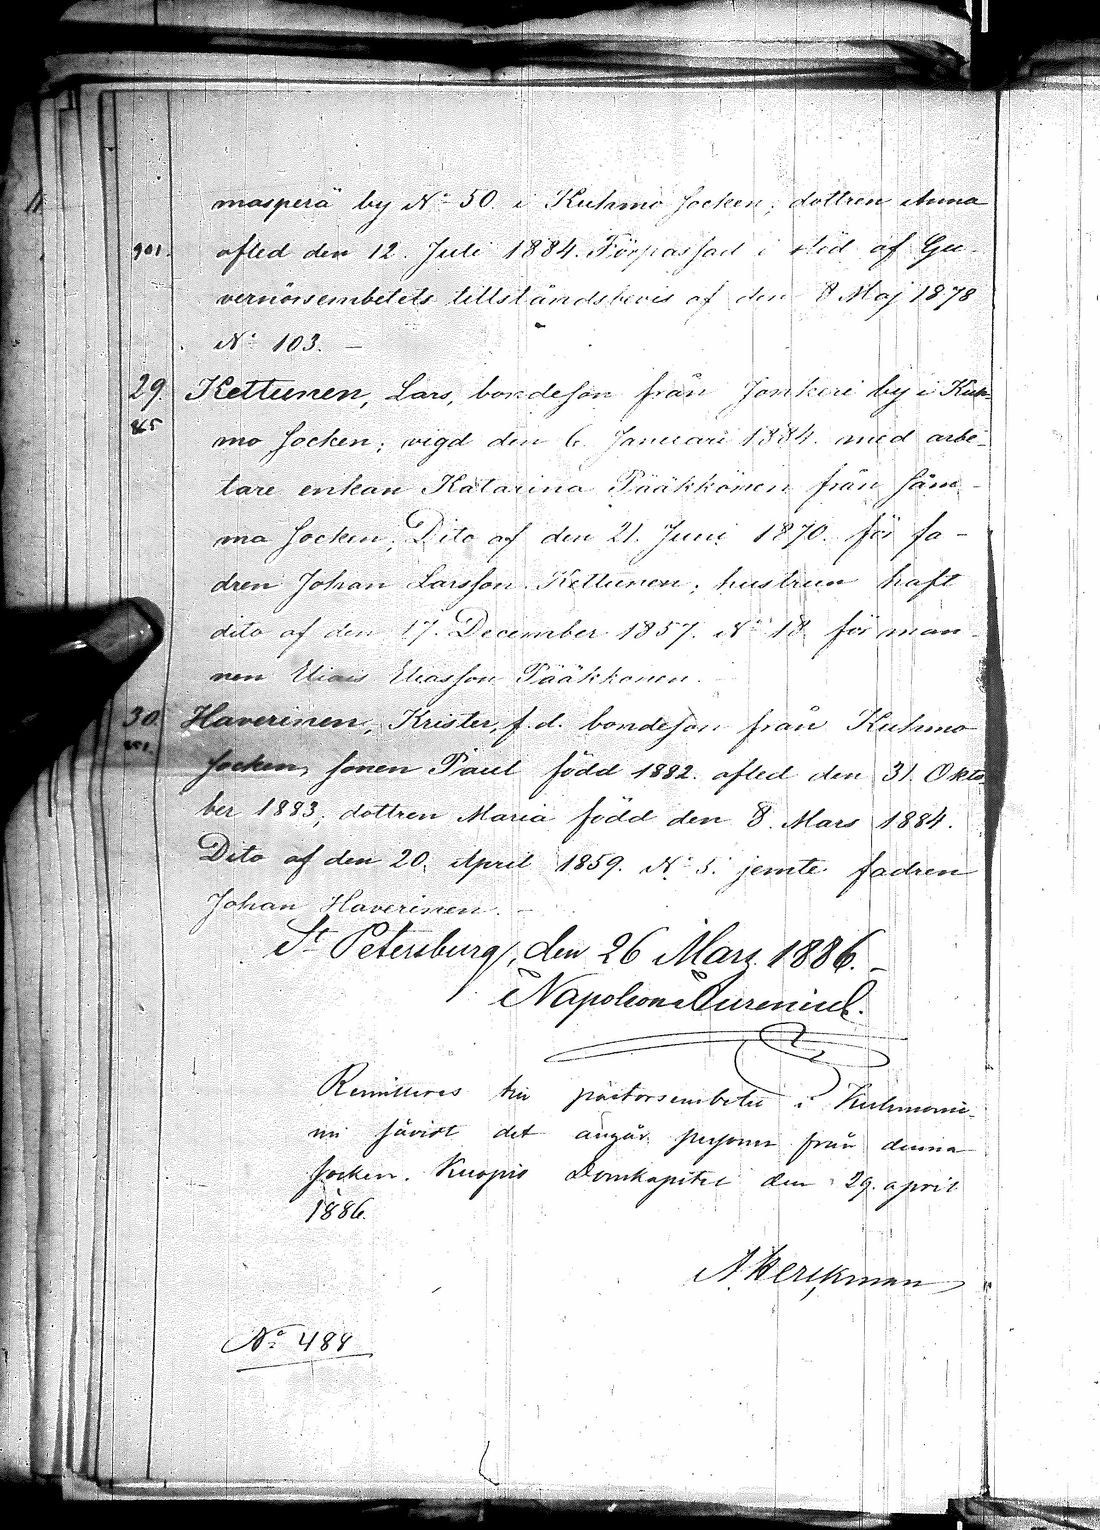 masperä by No 50. i Kuhmo socken; dottren Anna
901. afled den 12. Juli 1884. Förpassad i stöd af Gu-
vernörsembetets tillståndsbevis af den 8 Maj 1878
No 103. —
29. Kettunen, Lars, bondeson från Jonkeri by i Kuh-
mo socken; vigd den 6. Januari 1884. med arbe-
tare enkan Katarina Pääkkönen från sam-
ma socken; Dito af den 21. Juni 1870. för fa-
dren Johan Larsson Kettunen; hustrun haft
dito af den 17. December 1857. No 18 för man-
nen Elias Eliasson Pääkkönen.
30. Haverinen, Krister, f.d. bondeson från Kuhmo
socken, sonen Paul född 1882. afled den 31. Okto-
ber 1883; dottren Maria född den 8. Mars 1884.
Dito af den 20. April 1859. No 5. jemte fadren
Johan Haverinen. —
St Petersburg, den 26 Mars 1886. —
Napoleon
Remitteras till pastorsembetet i Kuhmonie-
mi såvidt det angår personer från denna
socken. Kuopio Domkapitel den 29. april
1886.
A Berckman
No 488